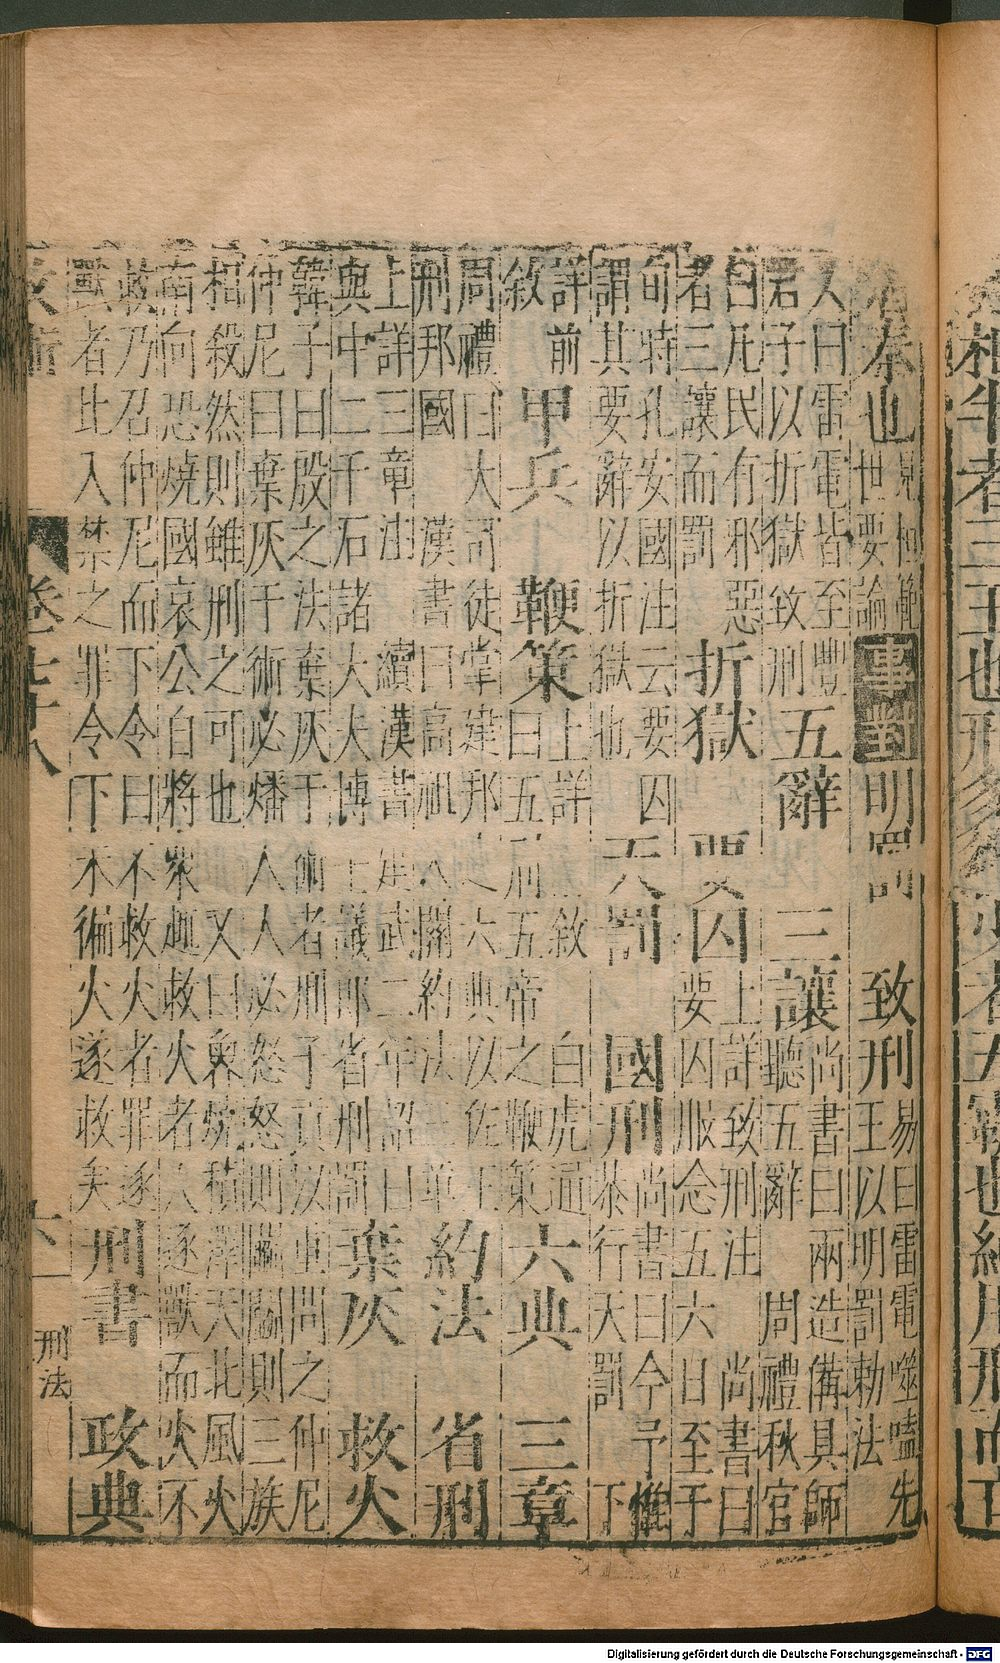 相半者三王也刑多
少者五霸也純用刑而亡
奉也
見桓範
世要論
事對 明罰 致刑
易曰雷電噬嗑先
王以明罰勅法
又曰雷電皆至豐
君子以折獄致刑
五辭 三讓
尚書曰兩造備具師
聽五辭 周禮秋官
曰凡民有邪惡
者三讓而罰
折獄 要囚
上詳致刑注 尚書曰
要囚服念五六日至于
旬時孔安國注云要囚
謂其要辭以折獄也
天罰 國刑
尚書曰今予惟
恭行天罰 下
詳前
敘
甲兵 鞭策
上詳上敘 白虎通
曰五刑五帝之鞭策
六典 三章
周禮曰大司徒掌建邦之六典以佐王
刑邦國 漢書曰高祖入關約法三章
約法 省刑
上詳三章注 續漢書建武二年詔曰
與中二千石諸大夫博士議郎省刑罰
棄灰 救火
韓子曰殷之法棄灰于術者刑子貢以車問之仲尼
仲尼曰棄灰于術必燔人人必怒怒則鬭鬭則三族
相殺然則雖刑之可也 又曰魯燒積澤天北風火
南向恐燒國哀公自將衆趣救火者人逐獸而火不
救乃召仲尼而下令曰不救火者罪逐
獸者比入禁之罪令下未徧火遂救矣
刑書 政典
刑法
Digitalisierung gefördert durch die Deutsche Forschungsgemeinschaft - DFG